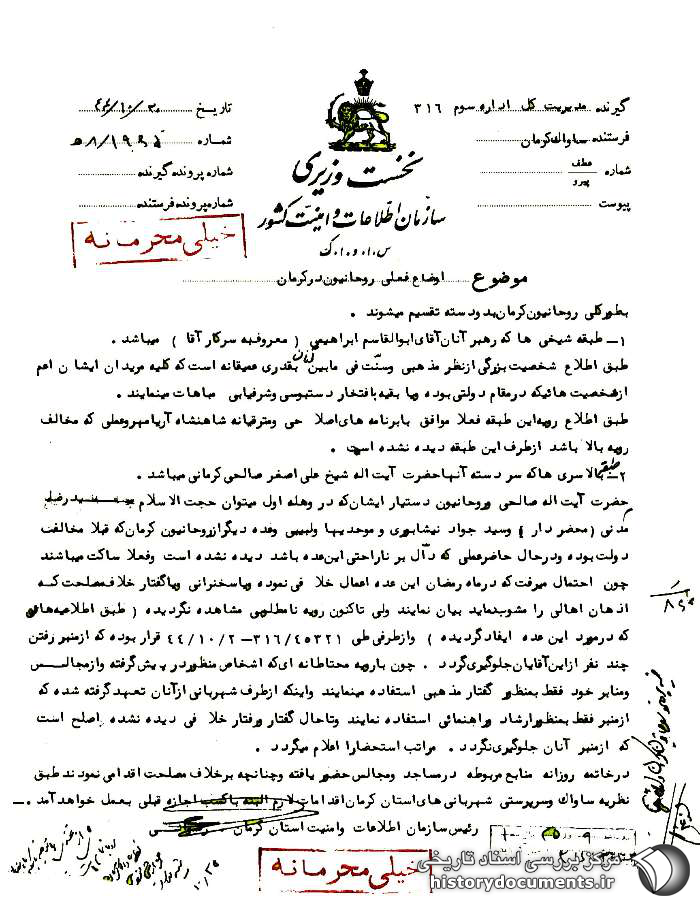 گیرنده مدیریت کل اداره سوم ۳۱۶
فرستنده ساواک کرمان
شماره عطف پیرو
پیوست
نخست وزیری
سازمان اطلاعات و امنیت کشور
س.ا.و.ا.ک
تاریخ ۴۴/۱۰/۳۰
شماره
شماره پرونده گیرنده
شماره پرونده فرستنده
خیلی محرمانه
موضوع اوضاع فعلی روحانیون در کرمان
بطور کلی روحانیون کرمان بدو دسته تقسیم میشوند .
۱ـ طبقه شیخی ها که رهبر آنان آقای ابوالقاسم ابراهیمی ( معروف به سرکار آقا ) میباشد .
طبق اطلاع شخصیت بزرگی از نظر مذهبی وسنت فی مابین آنان بقدری عمیقانه است که کلیه مریدان ایشان اعم
از شخصیت هائیکه در مقام دولتی بوده ویا بقیه بافتخار دستبوسی وشرفیابی مباهات مینمایند .
طبق اطلاع رویه این طبقه فعلا موافق بابرنامه های اصلاحی ومترقیانه شاهنشاه آریامهر وعملی که مخالف
رویه بالا باشد از طرف این طبقه دیده نشده است .
۲ـ طبقه بالاسری ها که سر دسته آنها حضرت آیت اله شیخ علی اصغر صالحی کرمانی میباشد .
حضرت آیت اله صالحی وروحانیون دستیار ایشان که در وهله اول میتوان حجت الاسلام
مدنی ( محضر دار ) وسید جواد نیشابوری و موحدیها ولبیبی وعده دیگر از روحانیون کرمان که قبلا مخالفت
دولت بوده ودرحال حاضر عملی که دال بر ناراحتی این عده باشد دیده نشده است وفعلا ساکت میباشند
چون احتمال میرفت که در ماه رمضان این عده اعمال خلافی نموده ویا سخنرانی ویا گفتار خلاف مصلحت که
اذهان اهالی را مشوب نماید بیان نمایند ولی تاکنون رویه نامطلوبی مشاهده نگردیده ( طبق اطلاعیه هائی
که در مورد این عده ایفاد گردیده ) واز طرفی طی ۳۱۶/۴۵۳۲۱ ـ ۴۴/۱۰/۲ قرار بوده که از منبر رفتن
چند نفر از این آقایان جلوگیری گردد . چون بارویه محتاطانه ای که اشخاص منظور در پیش گرفته واز مجالس
ومنابر خود فقط بمنظور گفتار مذهبی استفاده مینمایند واینکه از طرف شهربانی از آنان تعهد گرفته شده که
از منبر فقط بمنظور ارشاد وراهنمائی استفاده نمایند وتاحال گفتار ورفتار خلافی دیده نشده اصلح است
که از منبر آنان جلوگیری نگردد . مراتب استحضارا اعلام میگردد .
در خاتمه روزانه منابع مربوطه در مساجد ومجالس حضور یافته وچنانچه برخلاف مصلحت اقدامی نمودند طبق
نظریه ساواک وسرپرستی شهربانی های استان کرمان اقدامات لازم البته باکسب اجازه قبلی بعمل خواهد آمد .
رئیس سازمان اطلاعات وامنیت استان کرمان
خیلی محرمانه
مرکز بررسی اسناد تاریخی
historydocuments.ir